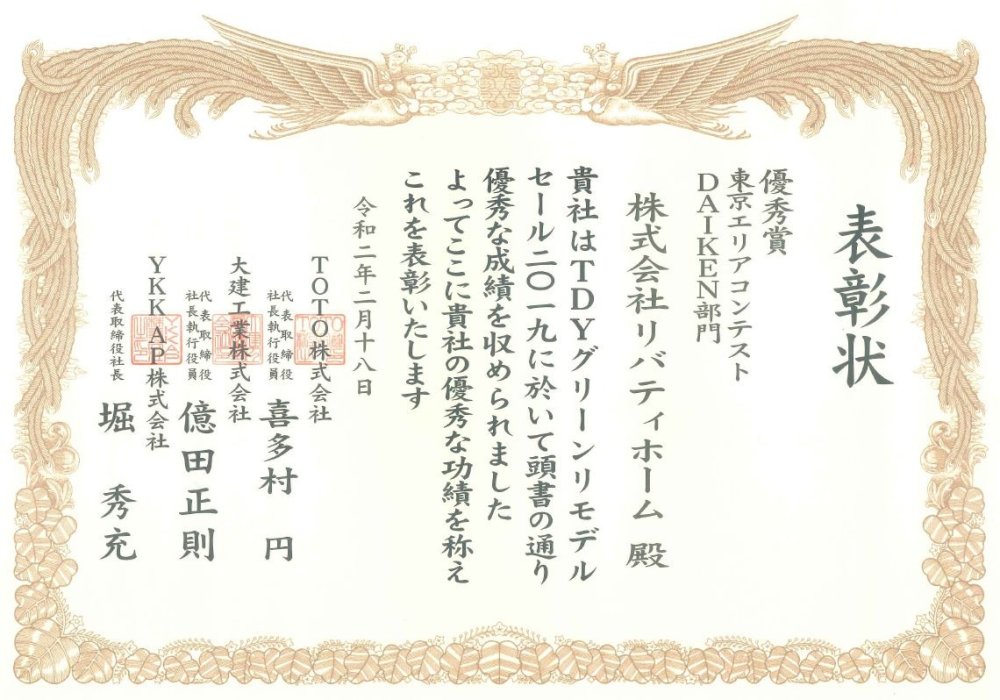 表彰状
優秀賞
東京エリアコンテスト
DAIKEN部門
株式会社リバティホーム 殿
貴社はTDYグリーンリモデル
セール二〇一九に於いて頭書の通り
優秀な成績を収められました
よってここに貴社の優秀な功績を称え
これを表彰いたします
令和二年二月十八日
TOTO株式会社
代表取締役
社長執行役員
喜多村 円
大建工業株式会社
代表取締役
社長執行役員
億田正則
YKK AP株式会社
代表取締役社長
堀 秀充